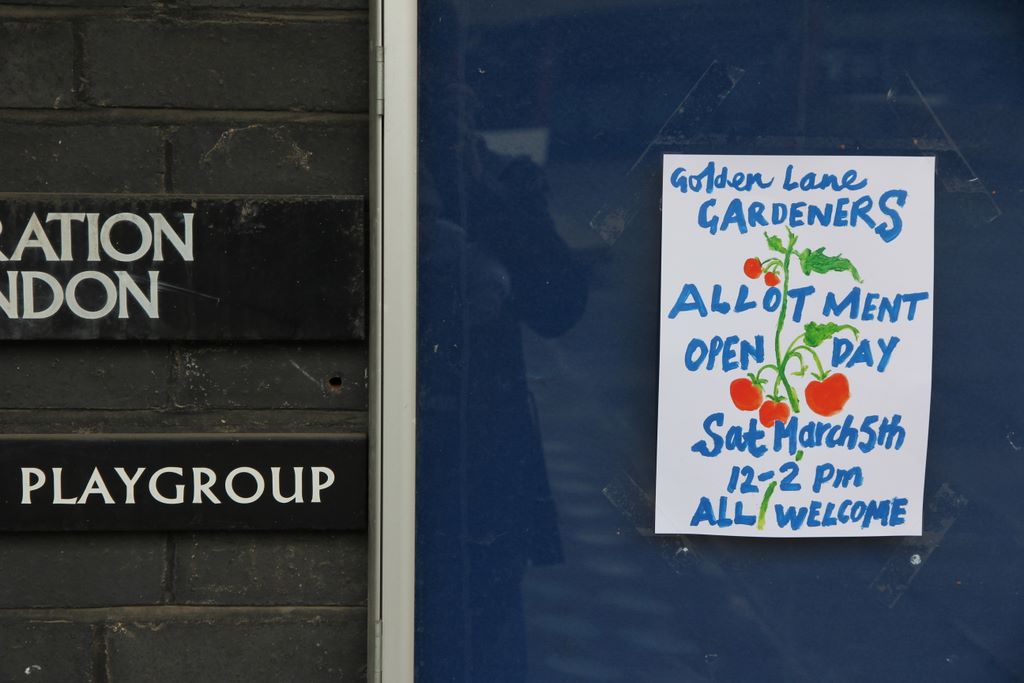 RATION
NDON
PLAYGROUP
Golden Lane
GARDENERS
ALLOTMENT
OPEN DAY
Sat March 5th
12-2 pm
ALL WELCOME